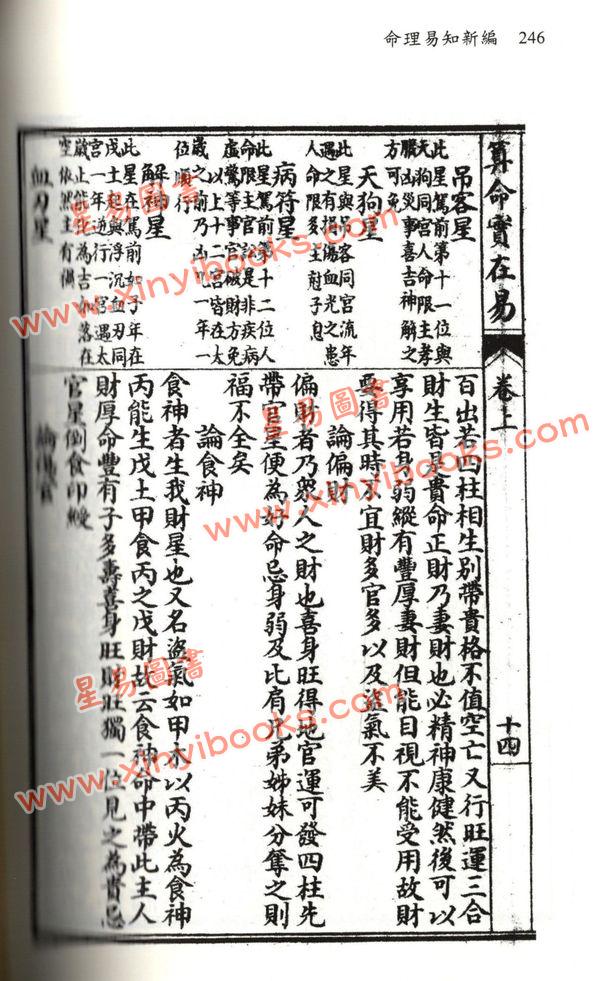 命理易知新編 246
算命實在易
卷上
十四
吊客星
此星駕前第十一位與
天狗同宮人命限主孝
服凶災事喜吉神解之
方可免
天狗星
此星與吊客同宮流年
遇之有損傷血光之患
人命限多主尅子息
病符星
此星駕前第十二位人
命限主官訟是非疾病
虛驚等事官破財方免
以上十二宮皆在太
歲之前乃凶一年一
位順行
解神星
此星在駕前如子年在
戌土起與浮沉血刃同
宮一年逆行一宮遇太
歲止能化為吉如落在
空依然主有
血刃星
百出若四柱相生別帶貴格不值空亡又行旺運三合
財生皆是貴命正財乃妻財也必精神康健然後可以
享用若身弱縱有豐厚妻財但能目視不能受用故財
要得其時不宜財多官多以及盜氣不美
論偏財
偏財者乃眾人之財也喜身旺得地官運可發四柱先
帶官星便為好命忌身弱及比肩兄弟姊妹分奪之則
福不全矣
論食神
食神者生我財星也又名盜氣如甲木以丙火為食神
丙能生戊土甲食丙之戊財故云食神命中帶此主人
財厚命豐有子多壽喜身旺財旺獨一位見之為貴忌
官星倒食印綬
論傷官
星易圖書
www.xinyibooks.com
星易圖書
www.xinyibooks.com
星易圖書
www.xinyibooks.com
星易圖書
www.xinyibooks.com